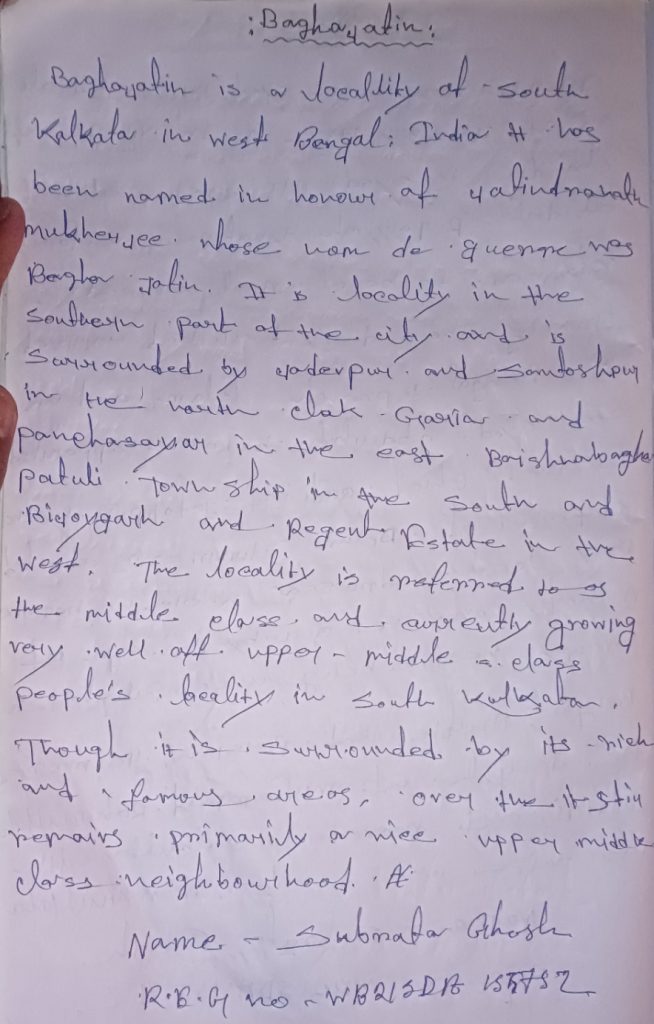 : Baghayatin :
Baghayatin is a locallity of south
Kalkata in west Bengal; India It has
been named in honour of yatindranath
mukherjee. whose nom de guerre was
Bagha Jatin. It is locality in the
southern part of the city and is
surrounded by yadavpur and Santoshpur
in the north Garia and
panchasayar in the east Baishnabagha
patuli Town ship in the south and
Bijoygarh and Regent Estate in the
west. The locality is referred to as
the middle class and currently growing
very well off upper - middle class
people's locality in south Kolkata.
Though it is surrounded by its rich
and famous areas, over the it still
remains primarily a nice upper middle
class neighbourhood.
Name - Subrata Ghosh
R.E.G no - WB21SDA